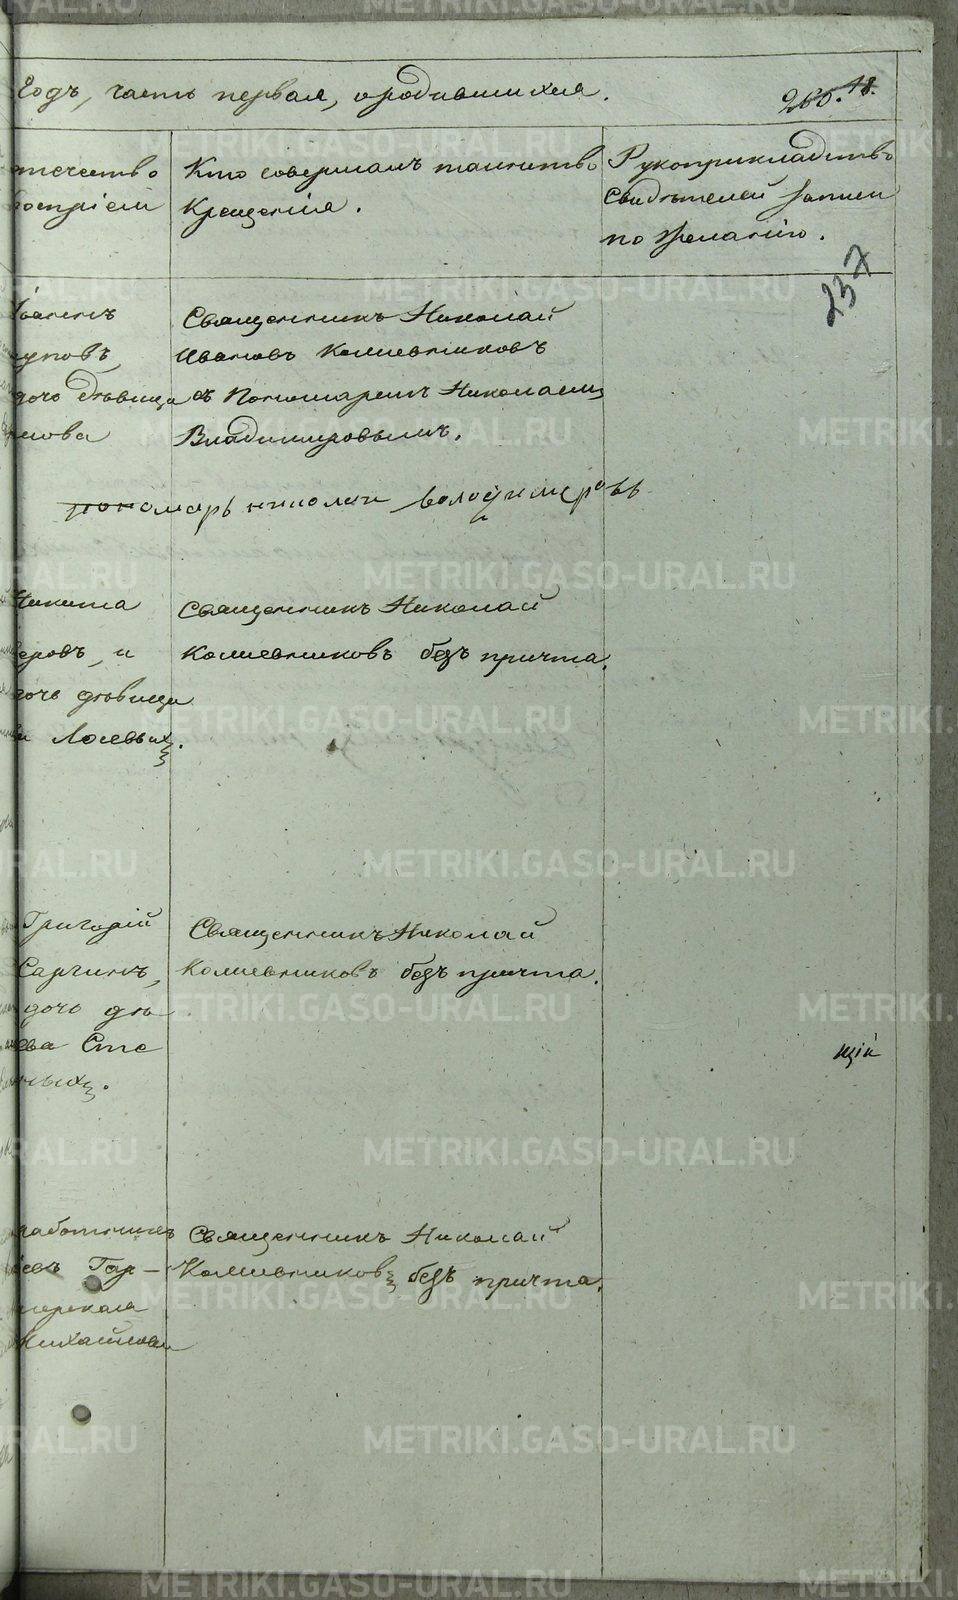 Годъ, часть первая, о родившихся.
260. 18.
237
отечество
воспріем
Кто совершалъ таинство
Крещенія.
Рукоприкладство
свидѣтелей записи
по желанію.
Священникъ Николай
Ивановъ Колшевниковъ
съ Пономаремъ Николаемъ
Владимировымъ.
пономарь николаи володимеровъ
Никита
еровъ, и
дочь дѣвица
Лосевыхъ.
Священникъ Николай
Колшевниковъ безъ причта.
Григорій
дочь дѣ
ева Сте
ныхъ.
Священникъ Николай
Колшевниковъ безъ причта.
щій
работникъ
Михайлова
Священникъ Николай
Колшевниковъ безъ причта.
METRIKI.GASO-URAL.RU